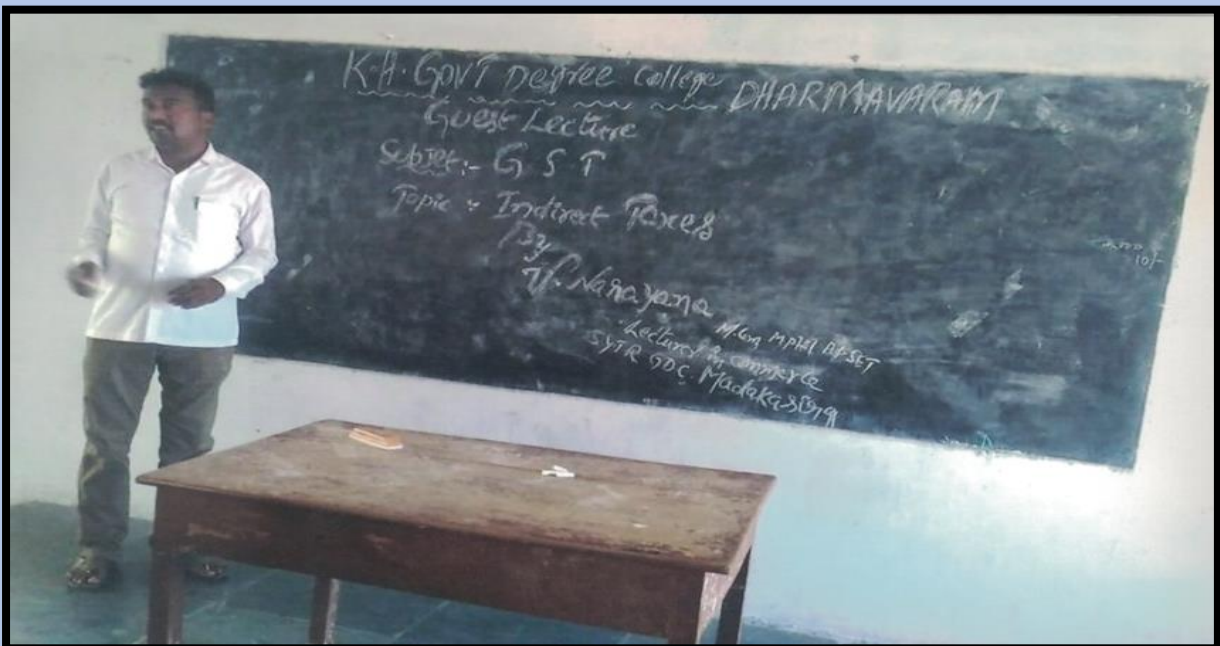 K.H. GOVT Degree College DHARMAVARAM
Guest Lecture
Subjet:- G S T
Topic : Indirect Taxes
By
Narayana M.Com MPhil APSET
Lecturer in commerce
SYTR GDC, Madakasira
10/-